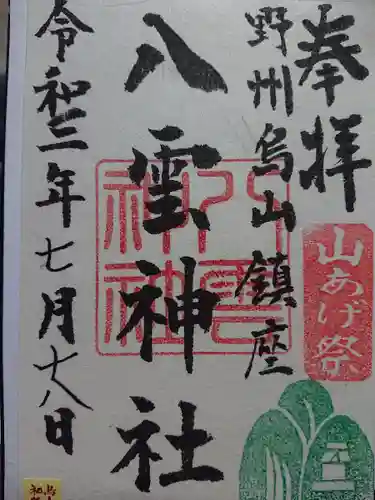 奉拝
山あげ祭
野州烏山鎮座
八雲神社
八雲神社
令和二年七月十八日